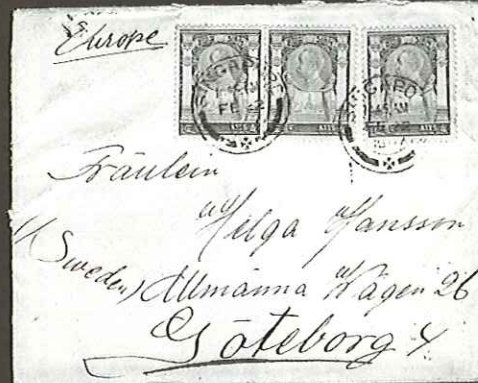 Europe
SINGAPO
FE 22
Fräulein
Helga Jansson
(Sweden) Allmänna Vägen 26
Göteborg 4